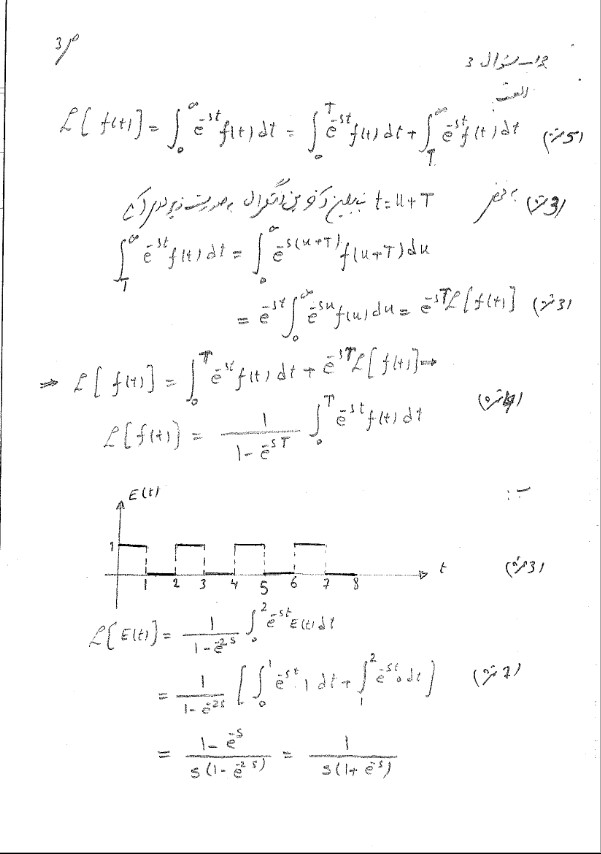 3م
جواب سؤال 3
الف
ℒ[f(t)] = ∫₀^∞ e^{-st} f(t) dt = ∫₀^T e^{-st} f(t) dt + ∫_T^∞ e^{-st} f(t) dt (5نمره)
t = u + T (3نمره)
∫_T^∞ e^{-st} f(t) dt = ∫₀^∞ e^{-s(u+T)} f(u+T) du
= e^{-sT} ∫₀^∞ e^{-su} f(u) du = e^{-sT} ℒ[f(t)] (3نمره)
⇒ ℒ[f(t)] = ∫₀^T e^{-st} f(t) dt + e^{-sT} ℒ[f(t)] ⇒
ℒ[f(t)] = \frac{1}{1 - e^{-sT}} ∫₀^T e^{-st} f(t) dt (4نمره)
ب:
E(t)
1
1 2 3 4 5 6 7 8 t (3نمره)
ℒ[E(t)] = \frac{1}{1 - e^{-2s}} ∫₀^2 e^{-st} E(t) dt
= \frac{1}{1 - e^{-2s}} [∫₀^1 e^{-st} · 1 dt + ∫₁^2 e^{-st} · 0 dt] (7نمره)
= \frac{1 - e^{-s}}{s(1 - e^{-2s})} = \frac{1}{s(1 + e^{-s})}